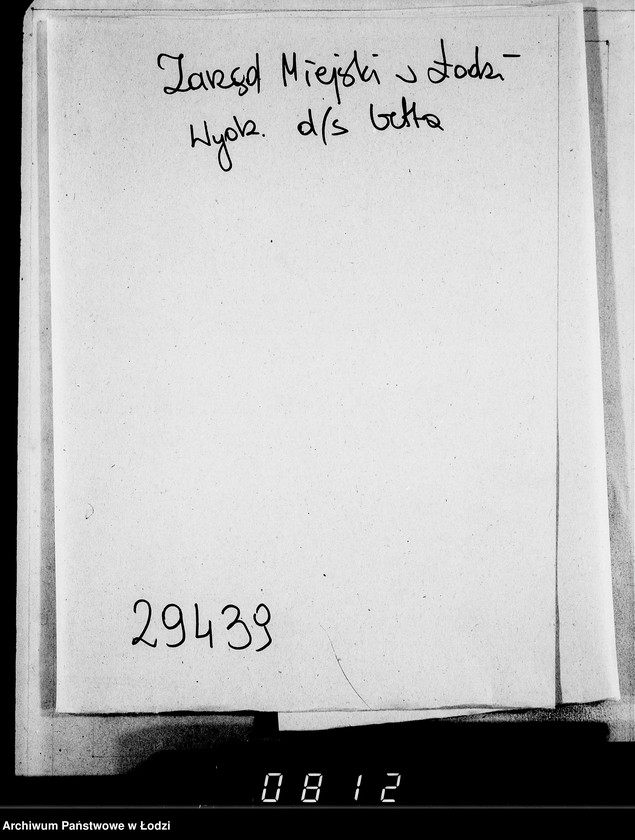 Zarząd Miejski w Łodzi
Wydz. d/s Getta
29439
0812
Archiwum Państwowe w Łodzi